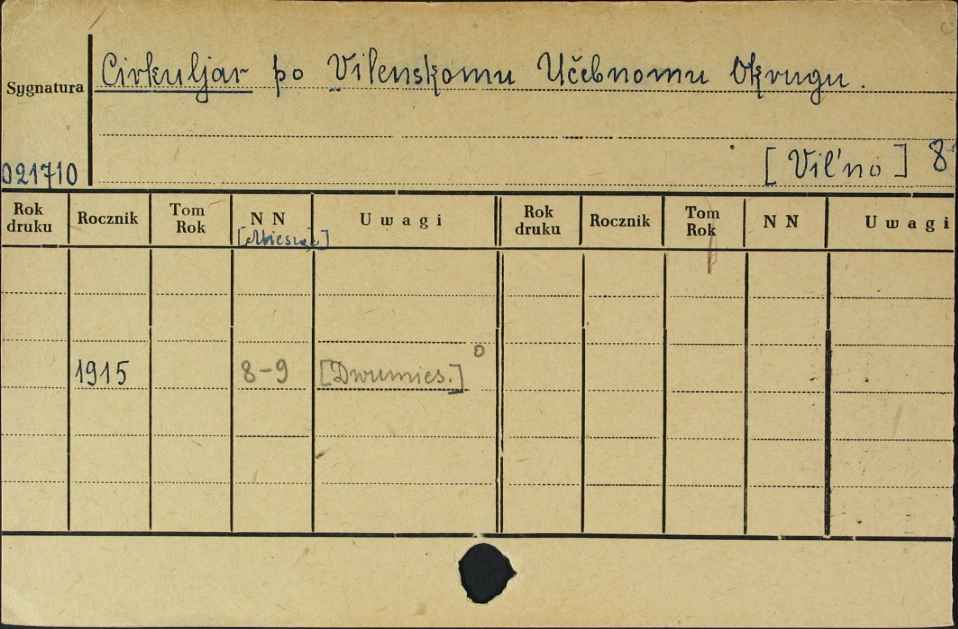 Cirkuljar po Vilenskomu Učebnomu Okrugu.
Sygnatura
021710
[Vil'no] 8°
Rok druku Rocznik Tom Rok N N Uwagi Rok druku Rocznik Tom Rok N N Uwagi
[Miesiące]
1915 8-9 [Dwumies.]